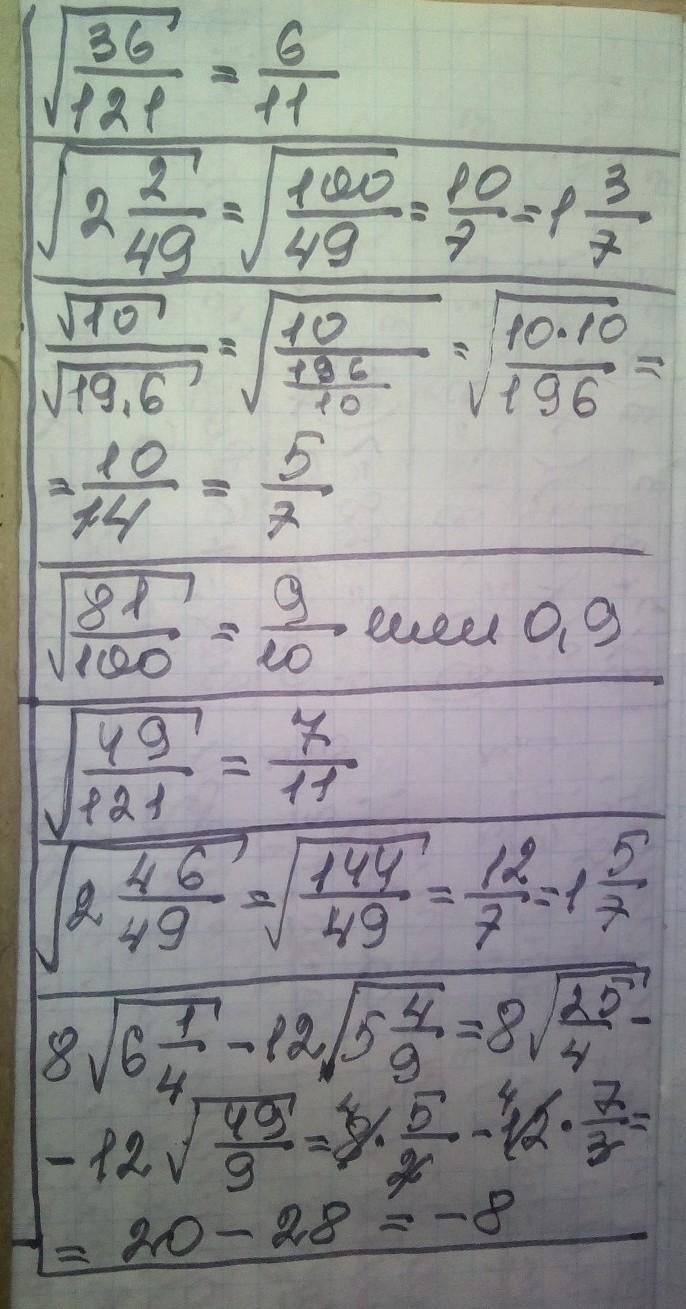 √(36/121) = 6/11
√(2 2/49) = √(100/49) = 10/7 = 1 3/7
√10/√19,6 = √(10/(196/10)) = √(10·10/196) =
= 10/14 = 5/7
√(81/100) = 9/10 или 0,9
√(49/121) = 7/11
√(2 46/49) = √(144/49) = 12/7 = 1 5/7
8√(6 1/4) - 12√(5 4/9) = 8√(25/4) -
- 12√(49/9) = 8· 5/2 - 12· 7/3 =
= 20 - 28 = -8